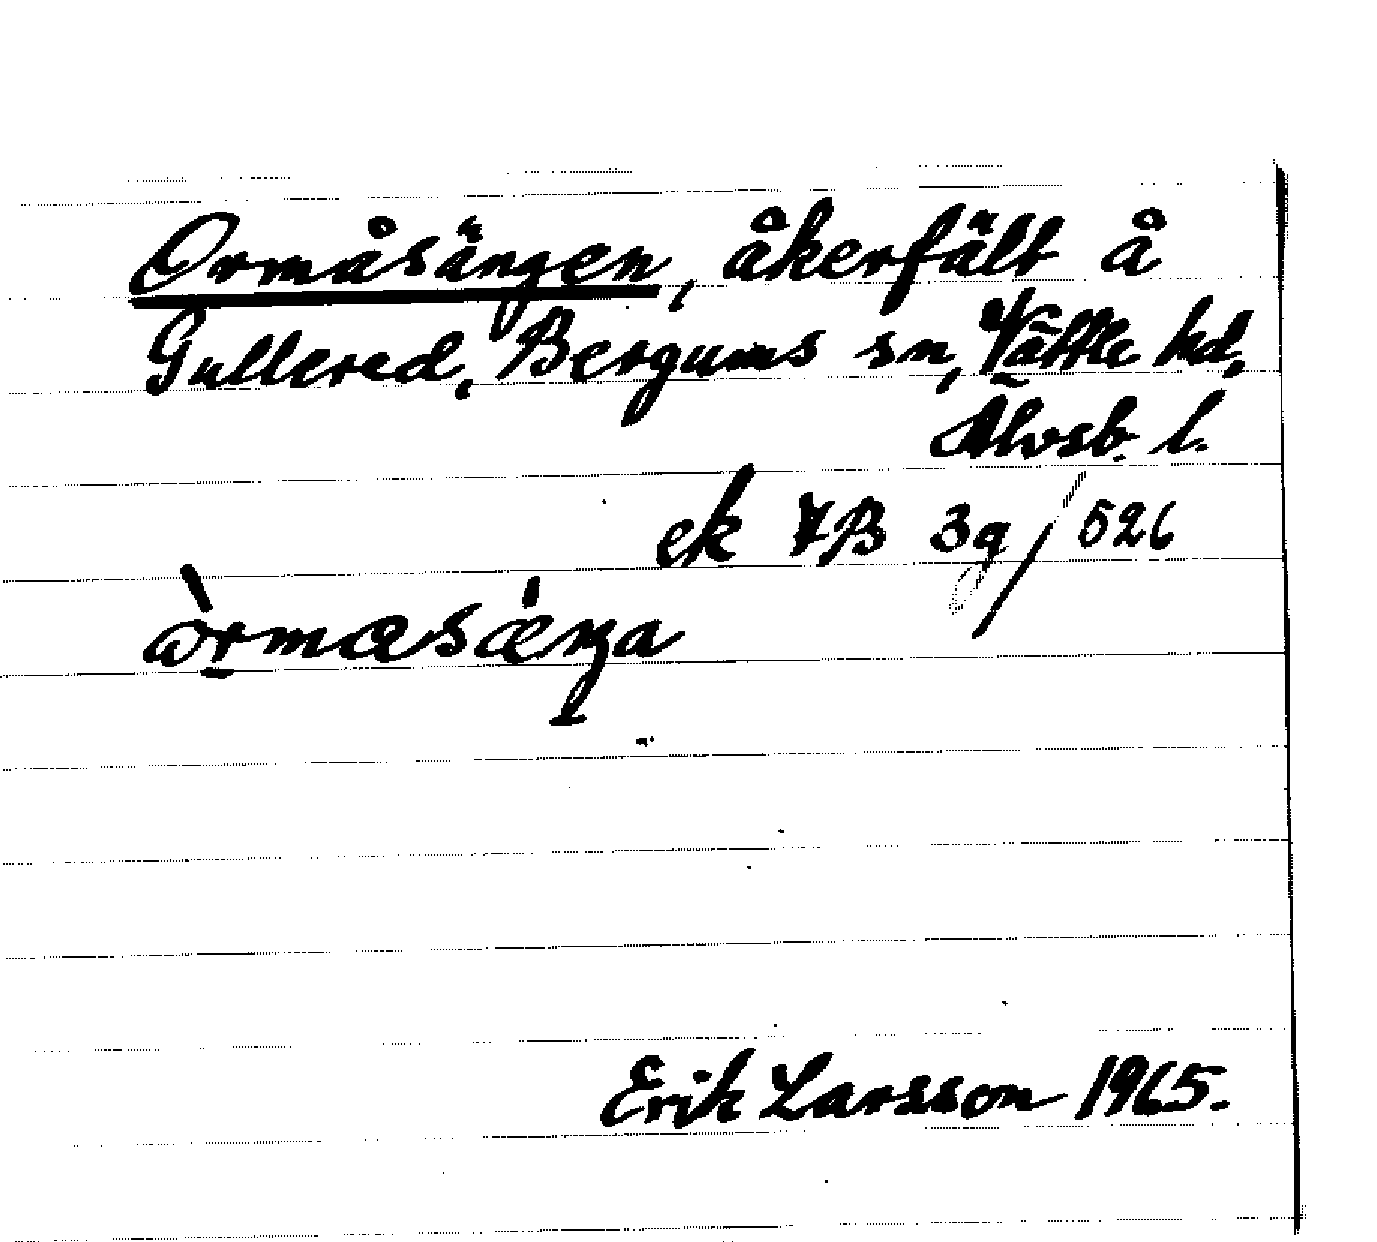 Ormåsängen, åkerfält å
Gullered, Bergums sn, Vättle hd,
Älvsb. l.
ek 7B 3g/526
òrmæsǽŋa
Erik Larsson 1965.